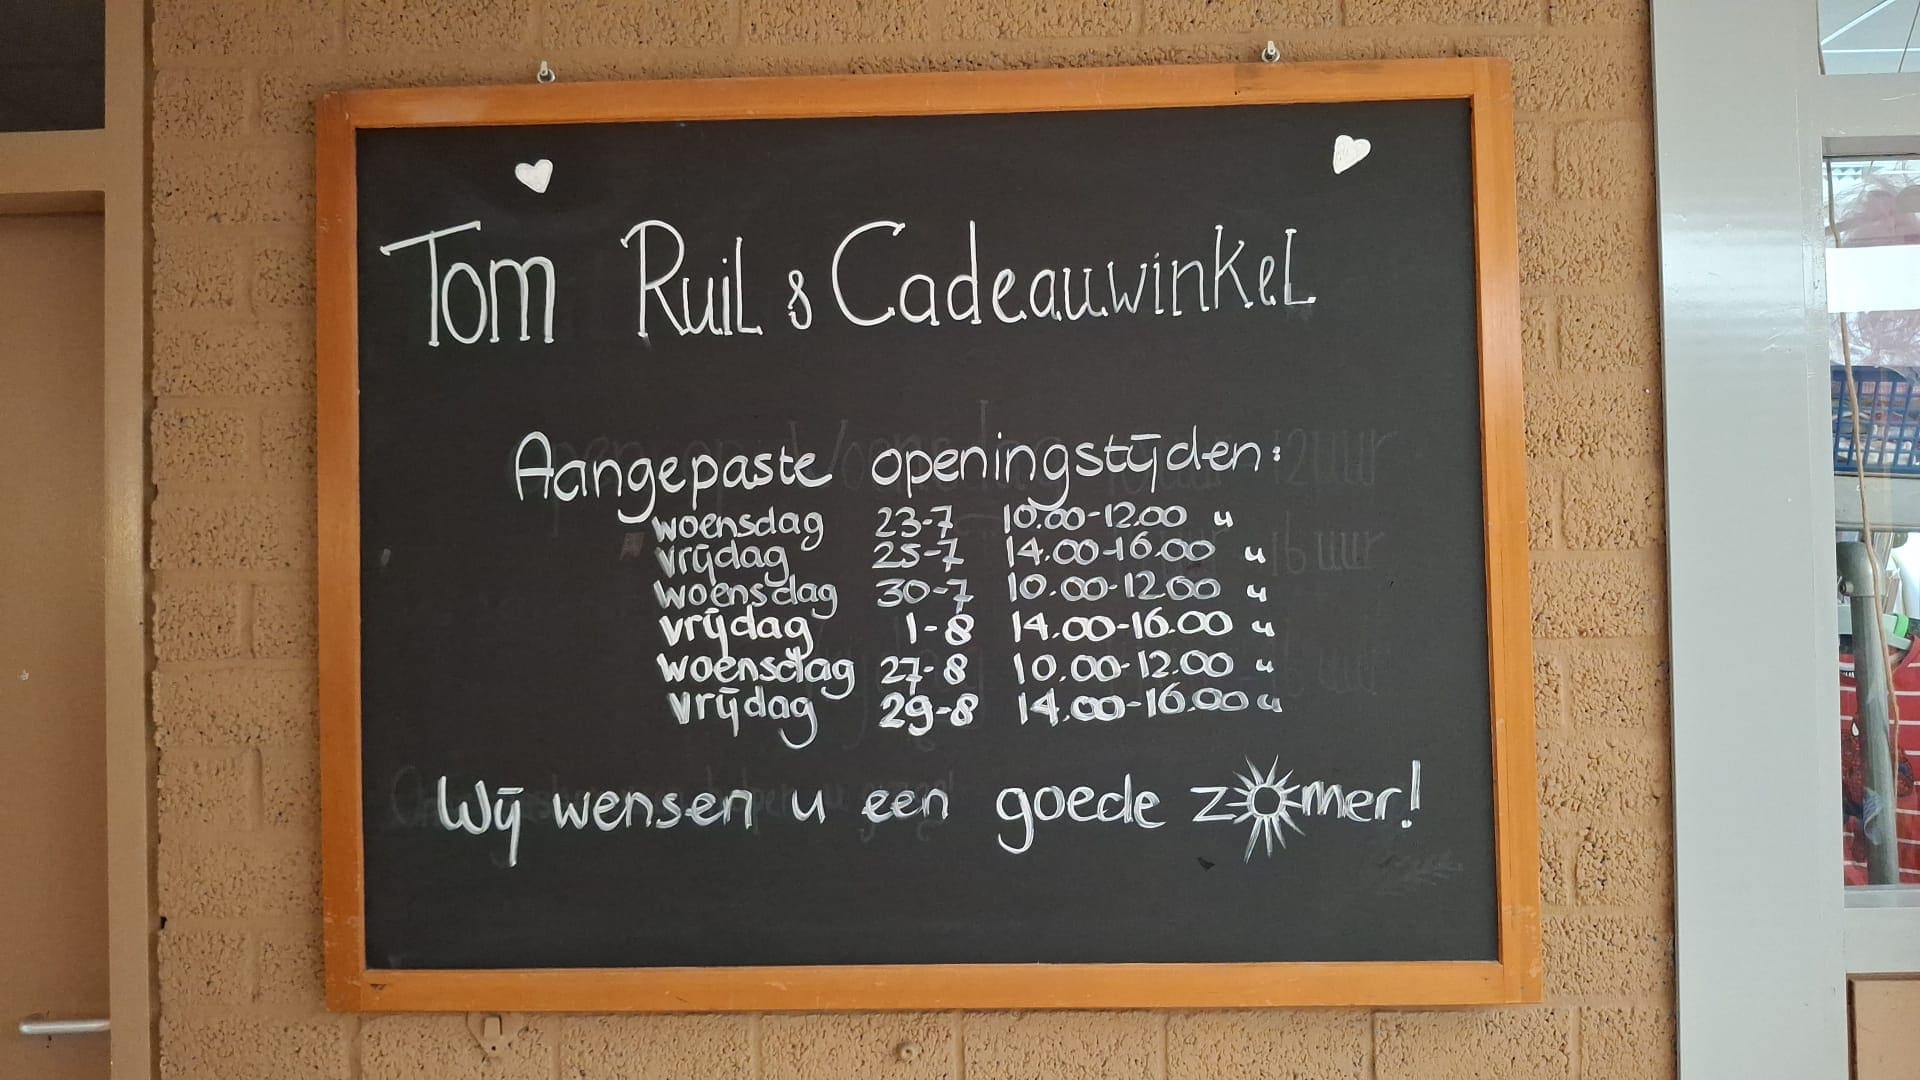 Tom Ruil & Cadeauwinkel
Aangepaste openingstijden:
woensdag 23-7 10.00-12.00 u
vrijdag 25-7 14.00-16.00 u
woensdag 30-7 10.00-12.00 u
vrijdag 1-8 14.00-16.00 u
woensdag 27-8 10.00-12.00 u
vrijdag 29-8 14.00-16.00 u
Wij wensen u een goede zomer!